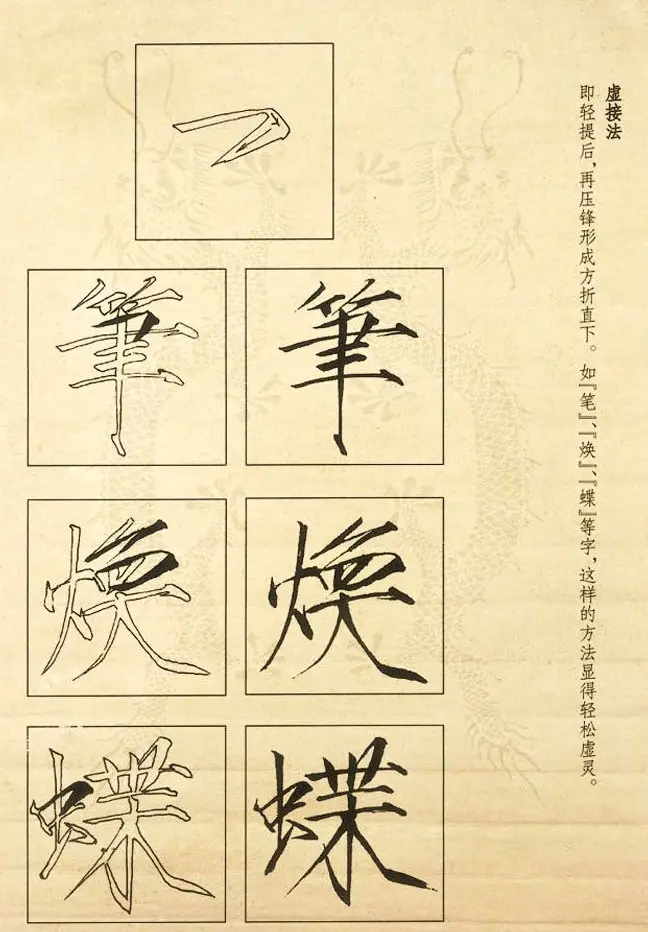 虚接法
即轻提后，再压锋形成方折直下。如『笔』、『焕』、『蝶』等字，这样的方法显得轻松虚灵。
筆 筆
焕 焕
蝶 蝶